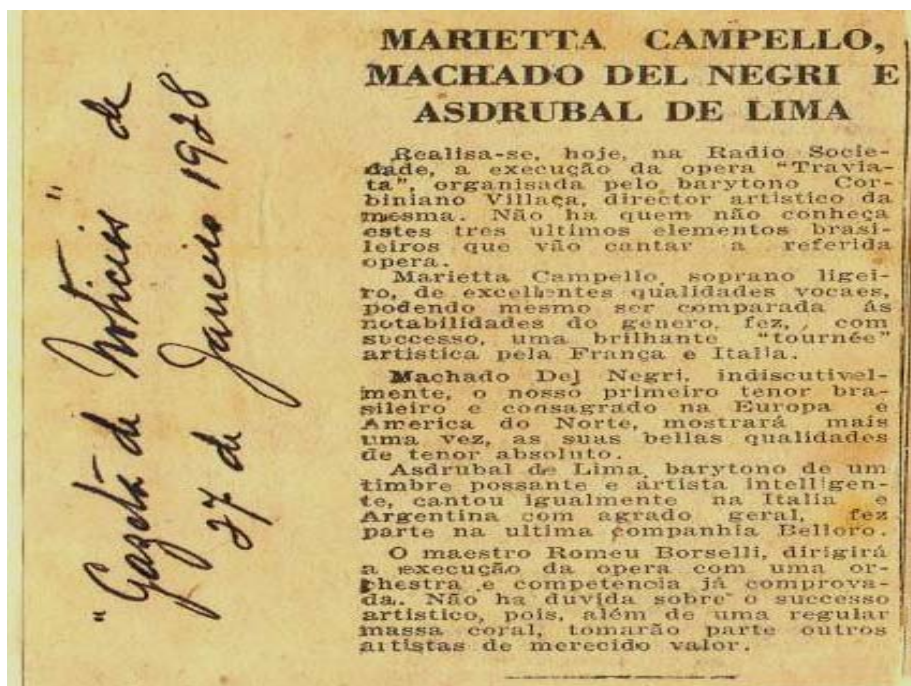 "Gazeta de Noticias" de
27 de Janeiro 1928
MARIETTA CAMPELLO,
MACHADO DEL NEGRI E
ASDRUBAL DE LIMA
Realisa-se, hoje, na Radio Socie-
dade, a execução da opera "Travia-
ta", organisada pelo barytono Cor-
biniano Villaça, director artistico da
mesma. Não ha quem não conheça
estes tres ultimos elementos brasi-
leiros que vão cantar a referida
opera.
Marietta Campello, soprano ligei-
ro, de excellentes qualidades vocaes,
podendo mesmo ser comparada ás
notabilidades do genero, fez, com
successo, uma brilhante "tournée"
artistica pela França e Italia.
Machado Del Negri, indiscutivel-
mente, o nosso primeiro tenor bra-
sileiro e consagrado na Europa e
America do Norte, mostrará mais
uma vez, as suas bellas qualidades
de tenor absoluto.
Asdrubal de Lima, barytono de um
timbre possante e artista intelligen-
te, cantou igualmente na Italia e
Argentina com agrado geral, fez
parte na ultima companhia Belloro.
O maestro Romeu Borselli, dirigirá
a execução da opera com uma or-
chestra e competencia já comprova-
da. Não ha duvida sobre o successo
artistico, pois, além de uma regular
massa coral, tomarão parte outros
artistas de merecido valor.